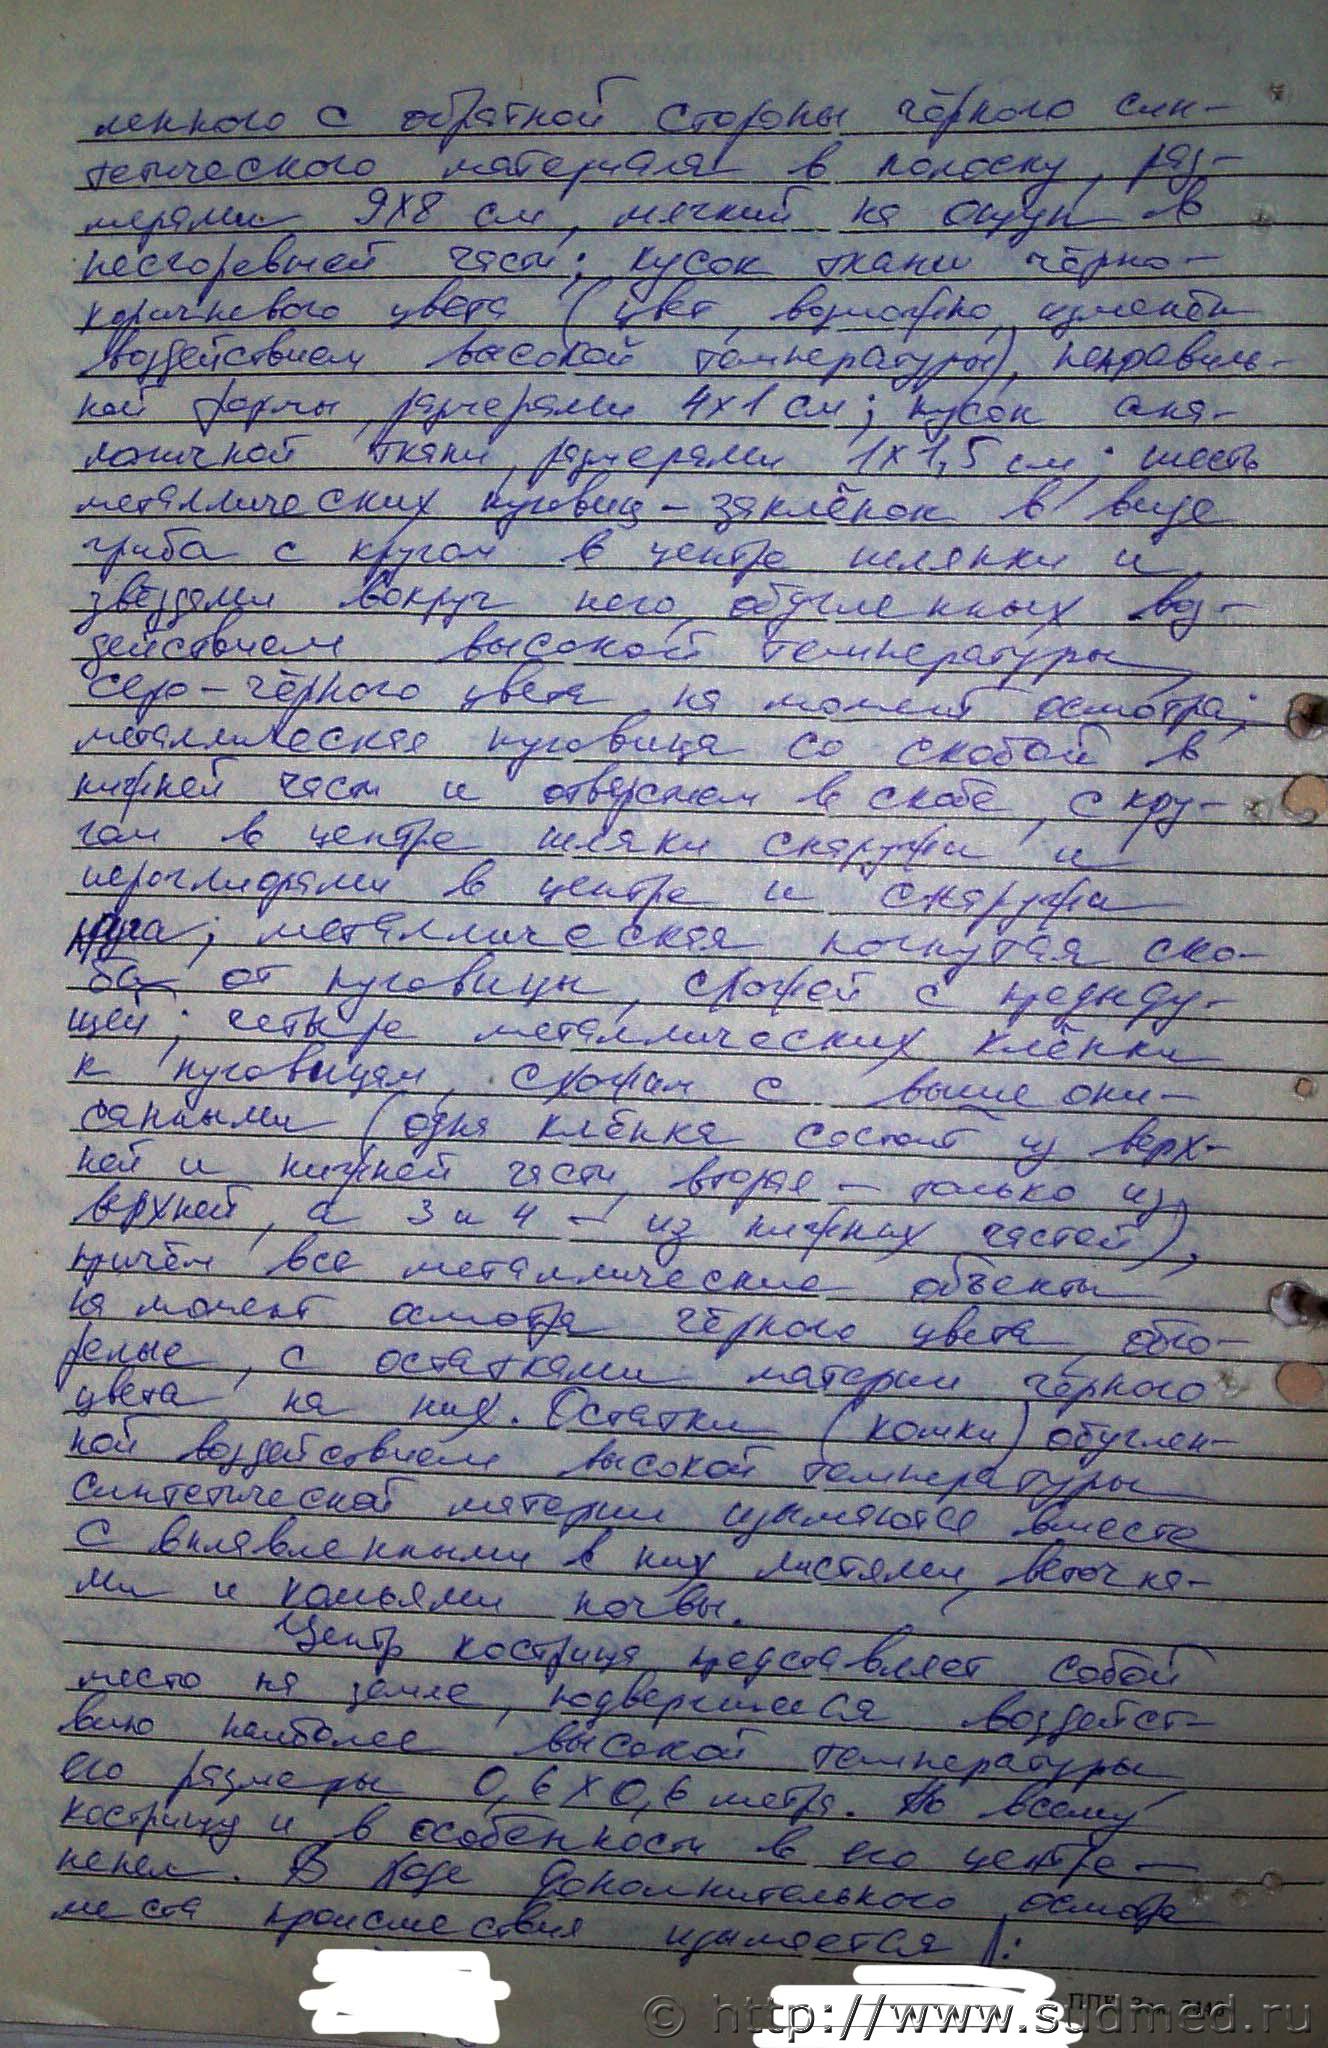 ленного с обратной стороны чёрного син-
тетического материала в полоску, раз-
мерами 9х8 см, мягкий на ощупь в
несгоревшей части; кусок ткани чёрно-
коричневого цвета (цвет, возможно, изменён
воздействием высокой температуры), неправиль-
ной формы, размерами 4х1 см; кусок ана-
логичной ткани, размерами 1х1,5 см; шесть
металлических пуговиц-заклёпок в виде
гриба с кругом в центре шляпки и
звёздами вокруг него, обугленных воз-
действием высокой температуры,
серо-чёрного цвета на момент осмотра;
металлическая пуговица со скобой в
нижней части и отверстием в скобе, с кру-
гом в центре шляпки снаружи и
иероглифами в центре и снаружи
круга; металлическая погнутая ско-
ба от пуговицы, схожей с предыду-
щей; четыре металлических клёпки
к пуговицам, схожим с вышеопи-
санными (одна клёпка состоит из верх-
ней и нижней части, вторая – только из
верхней, а 3 и 4 – из нижних частей),
причём все металлические объекты
на момент осмотра чёрного цвета, обго-
релые, с остатками материи чёрного
цвета на них. Остатки (комки) обуглен-
ной воздействием высокой температуры
синтетической материи изымаются вместе
с вплавленными в них листьями, веточка-
ми и комьями почвы.
Центр кострища представляет собой
место на земле, подвергшееся воздейст-
вию наиболее высокой температуры,
его размеры 0,6х0,6 метра. По всему
кострищу и в особенности в его центре –
пепел. В ходе дополнительного осмотра
места происшествия изымается:
ППК Зак.
© http://www.sudmed.ru